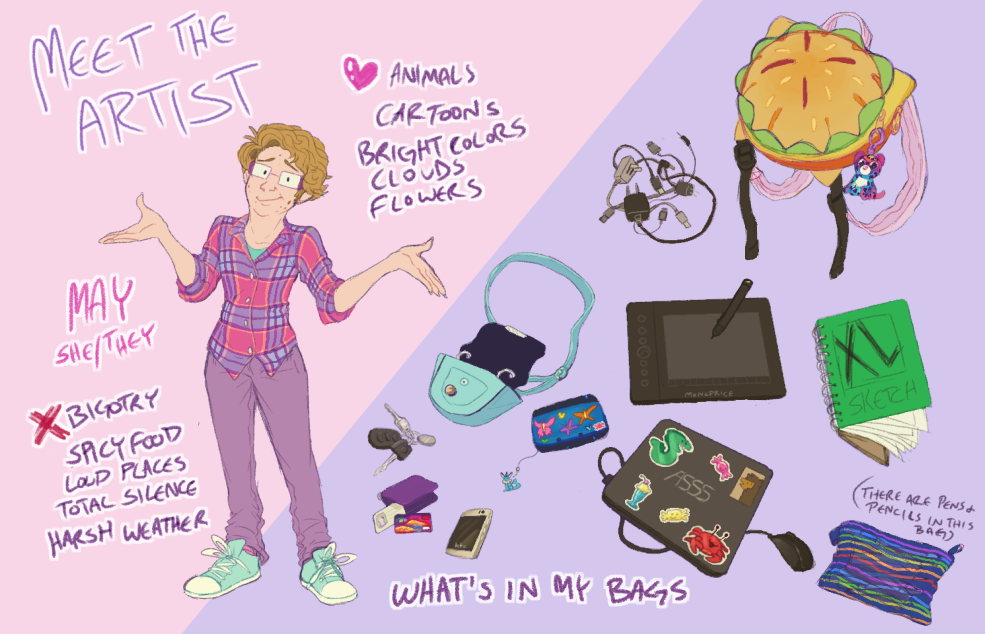 MEET THE
ARTIST
ANIMALS
CARTOONS
BRIGHT COLORS
CLOUDS
FLOWERS
MAY
SHE/THEY
BIGOTRY
SPICY FOOD
LOUD PLACES
TOTAL SILENCE
HARSH WEATHER
MONOPRICE
XL
SKETCH
ASSS
(THERE ARE PENS &
PENCILS IN THIS
BAG)
WHAT'S IN MY BAGS